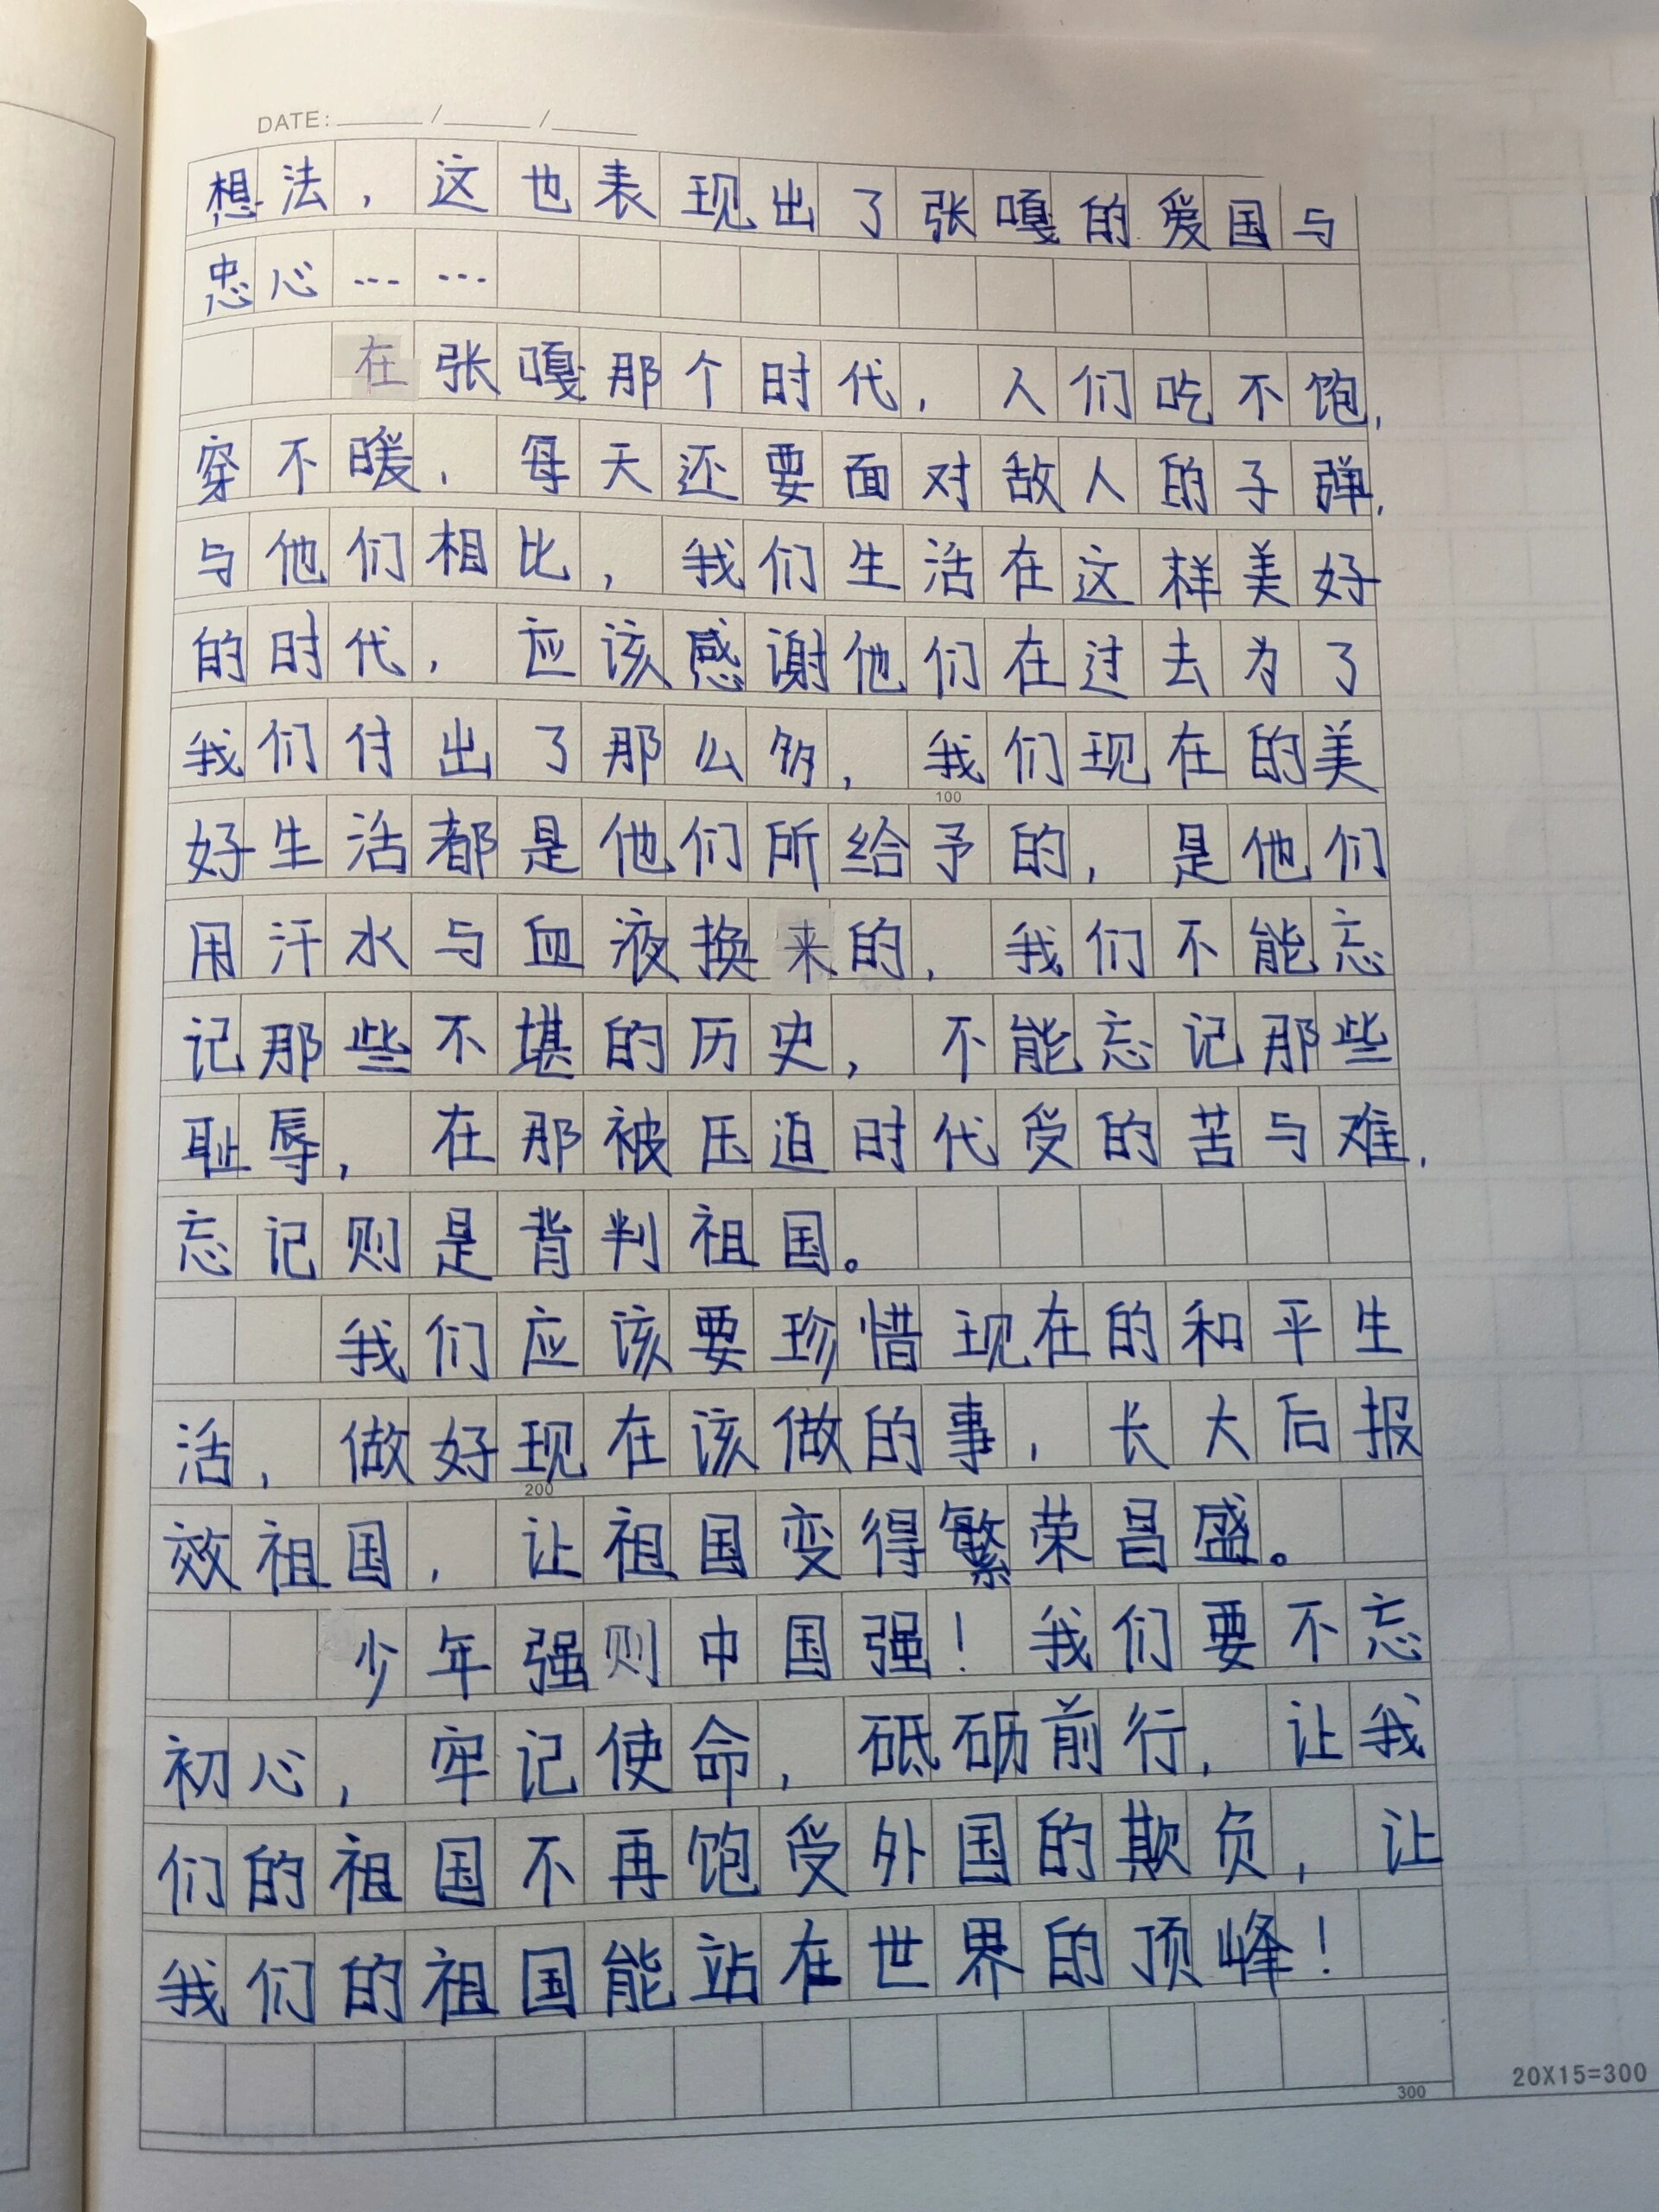 DATE: ____/____/____
想法，这也表现出了张嘎的爱国与
忠心……
在张嘎那个时代，人们吃不饱，
穿不暖，每天还要面对敌人的子弹，
与他们相比，我们生活在这样美好
的时代，应该感谢他们在过去为了
我们付出了那么多，我们现在的美
100
好生活都是他们所给予的，是他们
用汗水与血液换来的，我们不能忘
记那些不堪的历史，不能忘记那些
耻辱，在那被压迫时代受的苦与难，
忘记则是背判祖国。
我们应该要珍惜现在的和平生
活，做好现在该做的事，长大后报
200
效祖国，让祖国变得繁荣昌盛。
少年强则中国强！我们要不忘
初心，牢记使命，砥砺前行，让我
们的祖国不再饱受外国的欺负，让
我们的祖国能站在世界的顶峰！
300
20X15=300